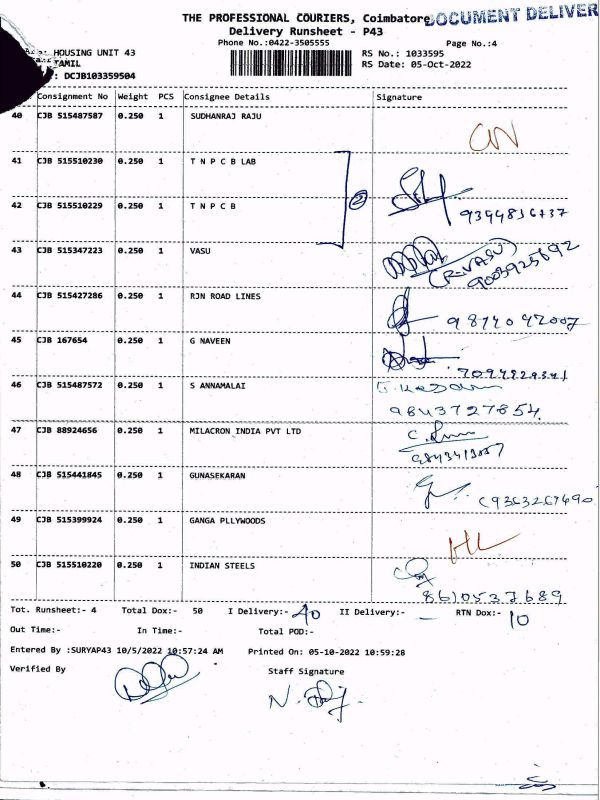 THE PROFESSIONAL COURIERS, Coimbatore
DOCUMENT DELIVER
Delivery Runsheet - P43
Phone No.:0422-3505555 Page No.:4
HOUSING UNIT 43 RS No.: 1033595
TAMIL RS Date: 05-Oct-2022
: DCJB103359504
Consignment No Weight PCS Consignee Details Signature
40 CJB 515487587 0.250 1 SUDHANRAJ RAJU
41 CJB 515510230 0.250 1 T N P C B LAB
2
42 CJB 515510229 0.250 1 T N P C B
43 CJB 515347223 0.250 1 VASU
(R.VASU)
9003925692
44 CJB 515427286 0.250 1 RJN ROAD LINES
45 CJB 167654 0.250 1 G NAVEEN
46 CJB 515487572 0.250 1 S ANNAMALAI
9843727854
47 CJB 88924656 0.250 1 MILACRON INDIA PVT LTD
48 CJB 515441845 0.250 1 GUNASEKARAN
49 CJB 515399924 0.250 1 GANGA PLLYWOODS
50 CJB 515510220 0.250 1 INDIAN STEELS
8610537689
Tot. Runsheet:- 4 Total Dox:- 50 I Delivery:- 40 II Delivery:- RTN Dox:- 10
Out Time:- In Time:- Total POD:-
Entered By :SURYAP43 10/5/2022 10:57:24 AM Printed On: 05-10-2022 10:59:28
Verified By Staff Signature